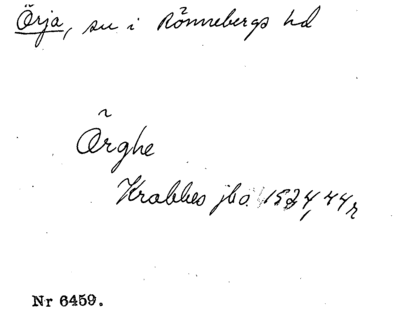 Örja, sn i Rönnebergs hd
Örghe
Krabbes jb 1524, 44r
Nr 6459.